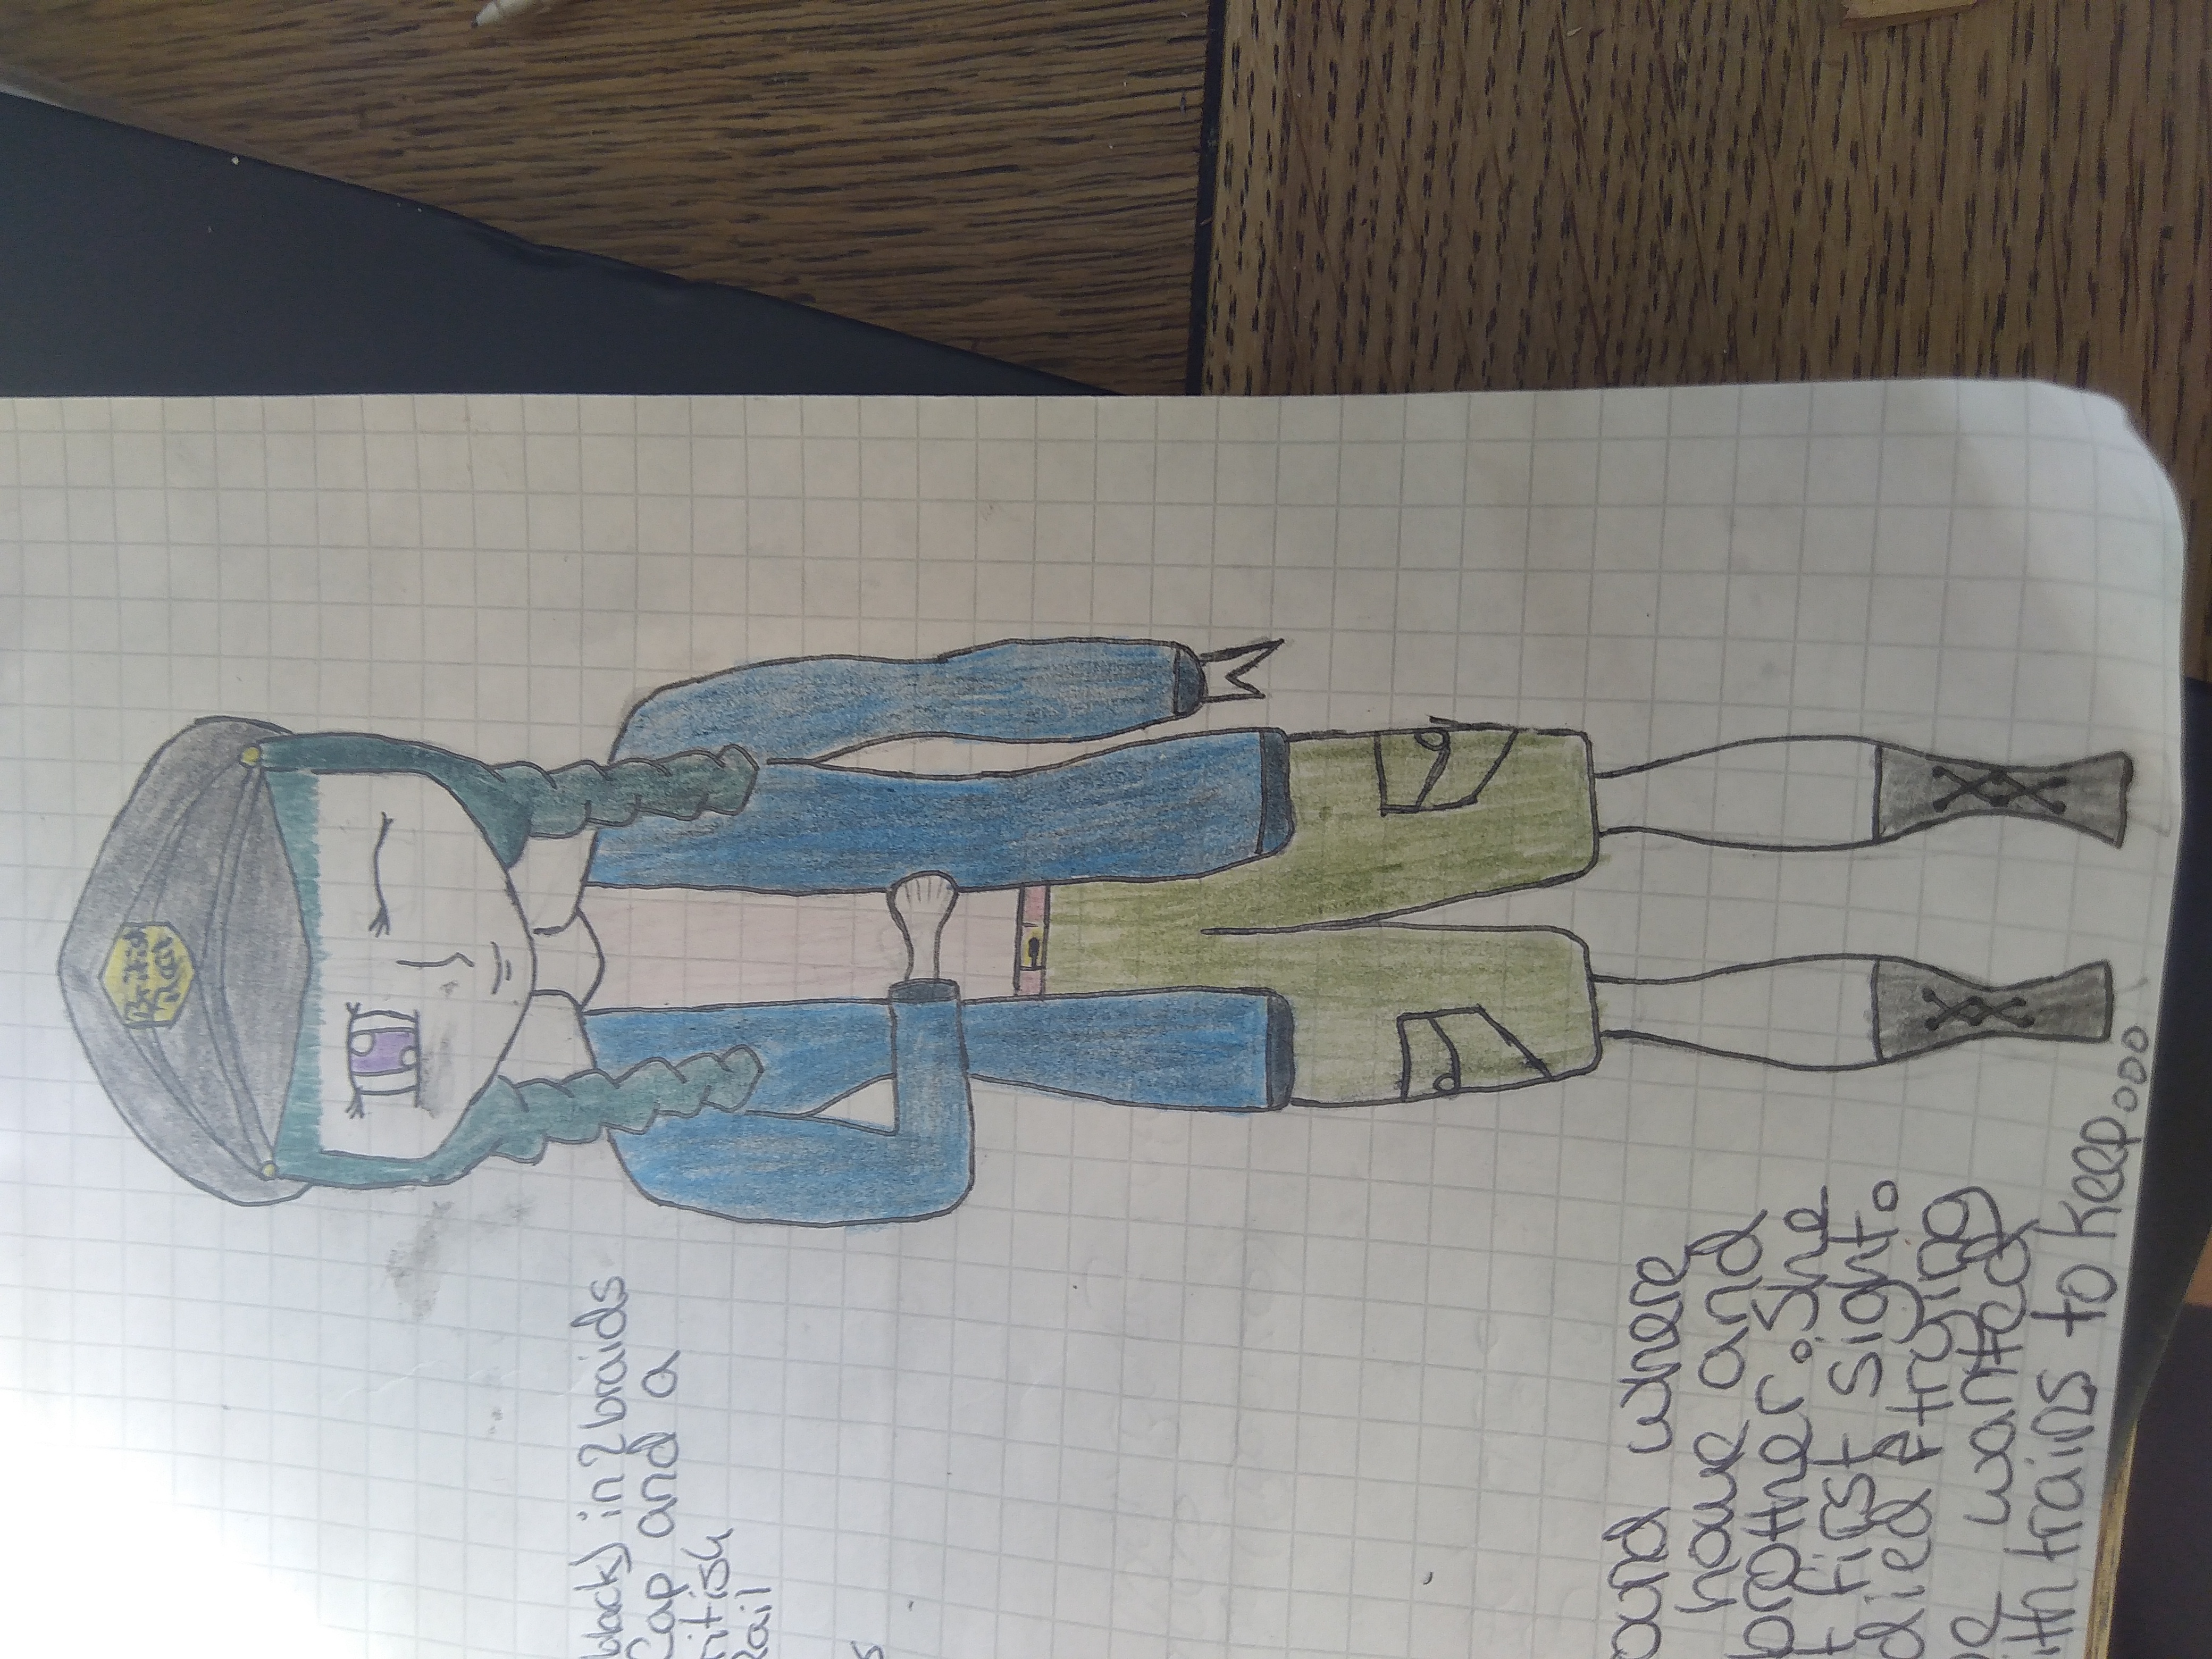 British
Rail
back) in 2 braids
Cap and a
ritish
Rail
s
ound where
have and
brother. She
t first sight.
died trying
e wanted
ith trains to keep....